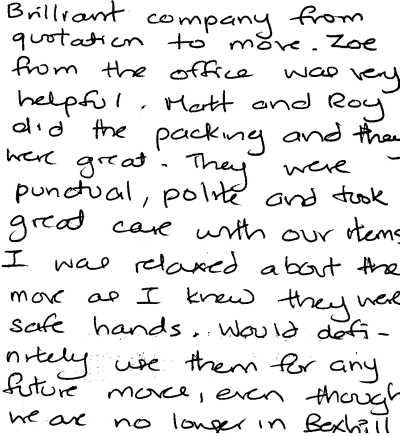 Brilliant company from
quotation to move. Zoe
from the office was very
helpful. Matt and Roy
did the packing and they
were great. They were
punctual, polite and took
great care with our items
I was relaxed about the
move as I knew they were
safe hands. Would defi-
nitely use them for any
future moves, even though
we are no longer in Bexhill